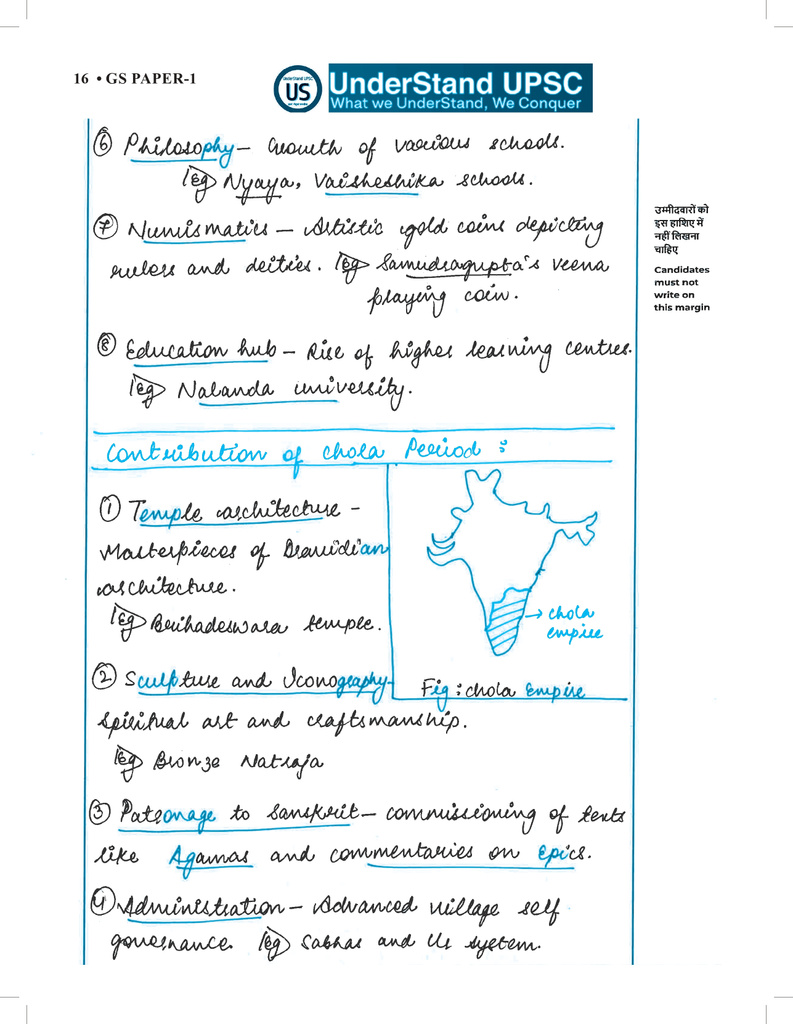 16 • GS PAPER-1
UnderStand UPSC
US
UnderStand UPSC
What we UnderStand, We Conquer
⑥ Philosophy – Growth of various schools.
eg Nyaya, Vaisheshika schools.
⑦ Numismatics – Artistic gold coins depicting
rulers and deities. eg Samudragupta's veena
playing coin.
⑧ Education hub – Rise of higher learning centres.
eg Nalanda university.
उम्मीदवारों को
इस हाशिए में
नहीं लिखना
चाहिए
Candidates
must not
write on
this margin
Contribution of Chola Period :
① Temple architecture –
Masterpieces of Dravidian
architecture.
eg Brihadeswara temple.
→ chola
empire
Fig : chola Empire
② Sculpture and Iconography –
spiritual art and craftsmanship.
eg Bronze Natraja
③ Patronage to Sanskrit – commissioning of texts
like Agamas and commentaries on Epics.
④ Administration – Advanced village self
governance. eg Sabhas and Ur system.